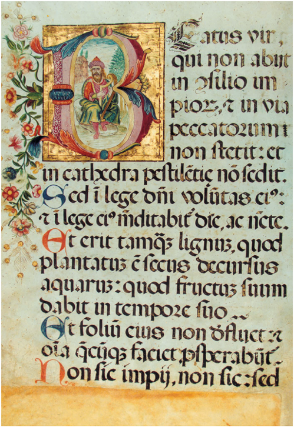 Beatus vir,
qui non abijt
in ꝯsilio im
pioꝝ, ⁊ in via
peccatorum
non stetit: et
in cathedra pestilētie nō sedit.
Sed ī lege dn̄i volūtas ei⁹:
⁊ ī lege ei⁹ meditabit̄ die, ac nocte.
Et erit tamqꝫ lignuꝫ, quod
plantatuꝫ ē secus decursus
aquaruꝫ: quod fructuꝫ suum
dabit in tempore suo
Et foliū eius non defluet ⁊
oīa quecūqꝫ faciet ꝓsperabūt̄.
Non sic impij, non sic: sed